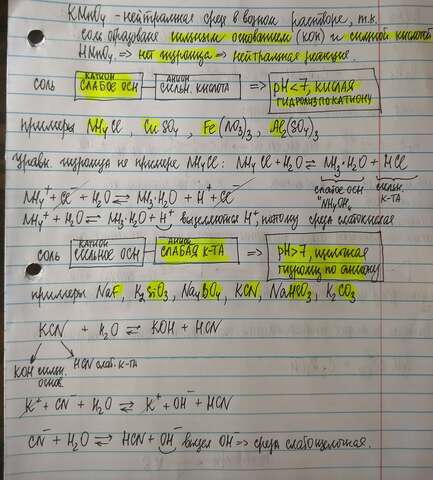 KMnO₄ - нейтральная среда в водном растворе, т.к.
соль образована сильным основанием (KOH) и сильной кислотой
HMnO₄ => нет гидролиза => нейтральная реакция.
соль КАТИОН СЛАБОЕ ОСН — АНИОН СИЛЬН. КИСЛОТА => pH<7, КИСЛАЯ
ГИДРОЛИЗ ПО КАТИОНУ
примеры NH₄Cl, CuSO₄, Fe(NO₃)₃, Al₂(SO₄)₃
Уравн. гидролиза на примере NH₄Cl: NH₄Cl + H₂O ⇄ NH₃·H₂O + HCl
слабое осн "NH₄OH" сильн. к-та
NH₄⁺ + Cl⁻ + H₂O ⇄ NH₃·H₂O + H⁺ + Cl⁻
NH₄⁺ + H₂O ⇄ NH₃·H₂O + H⁺ выделяются H⁺, поэтому среда слабокислая
соль КАТИОН СИЛЬНОЕ ОСН — АНИОН СЛАБАЯ К-ТА => pH>7, щелочная
гидролиз по аниону
примеры NaF, K₂SiO₃, Na₄BO₄, KCN, NaHCO₃, K₂CO₃
KCN + H₂O ⇄ KOH + HCN
KOH сильн. основ. HCN слаб. к-та
K⁺ + CN⁻ + H₂O ⇄ K⁺ + OH⁻ + HCN
CN⁻ + H₂O ⇄ HCN + OH⁻ выдел OH⁻ => среда слабощелочная.